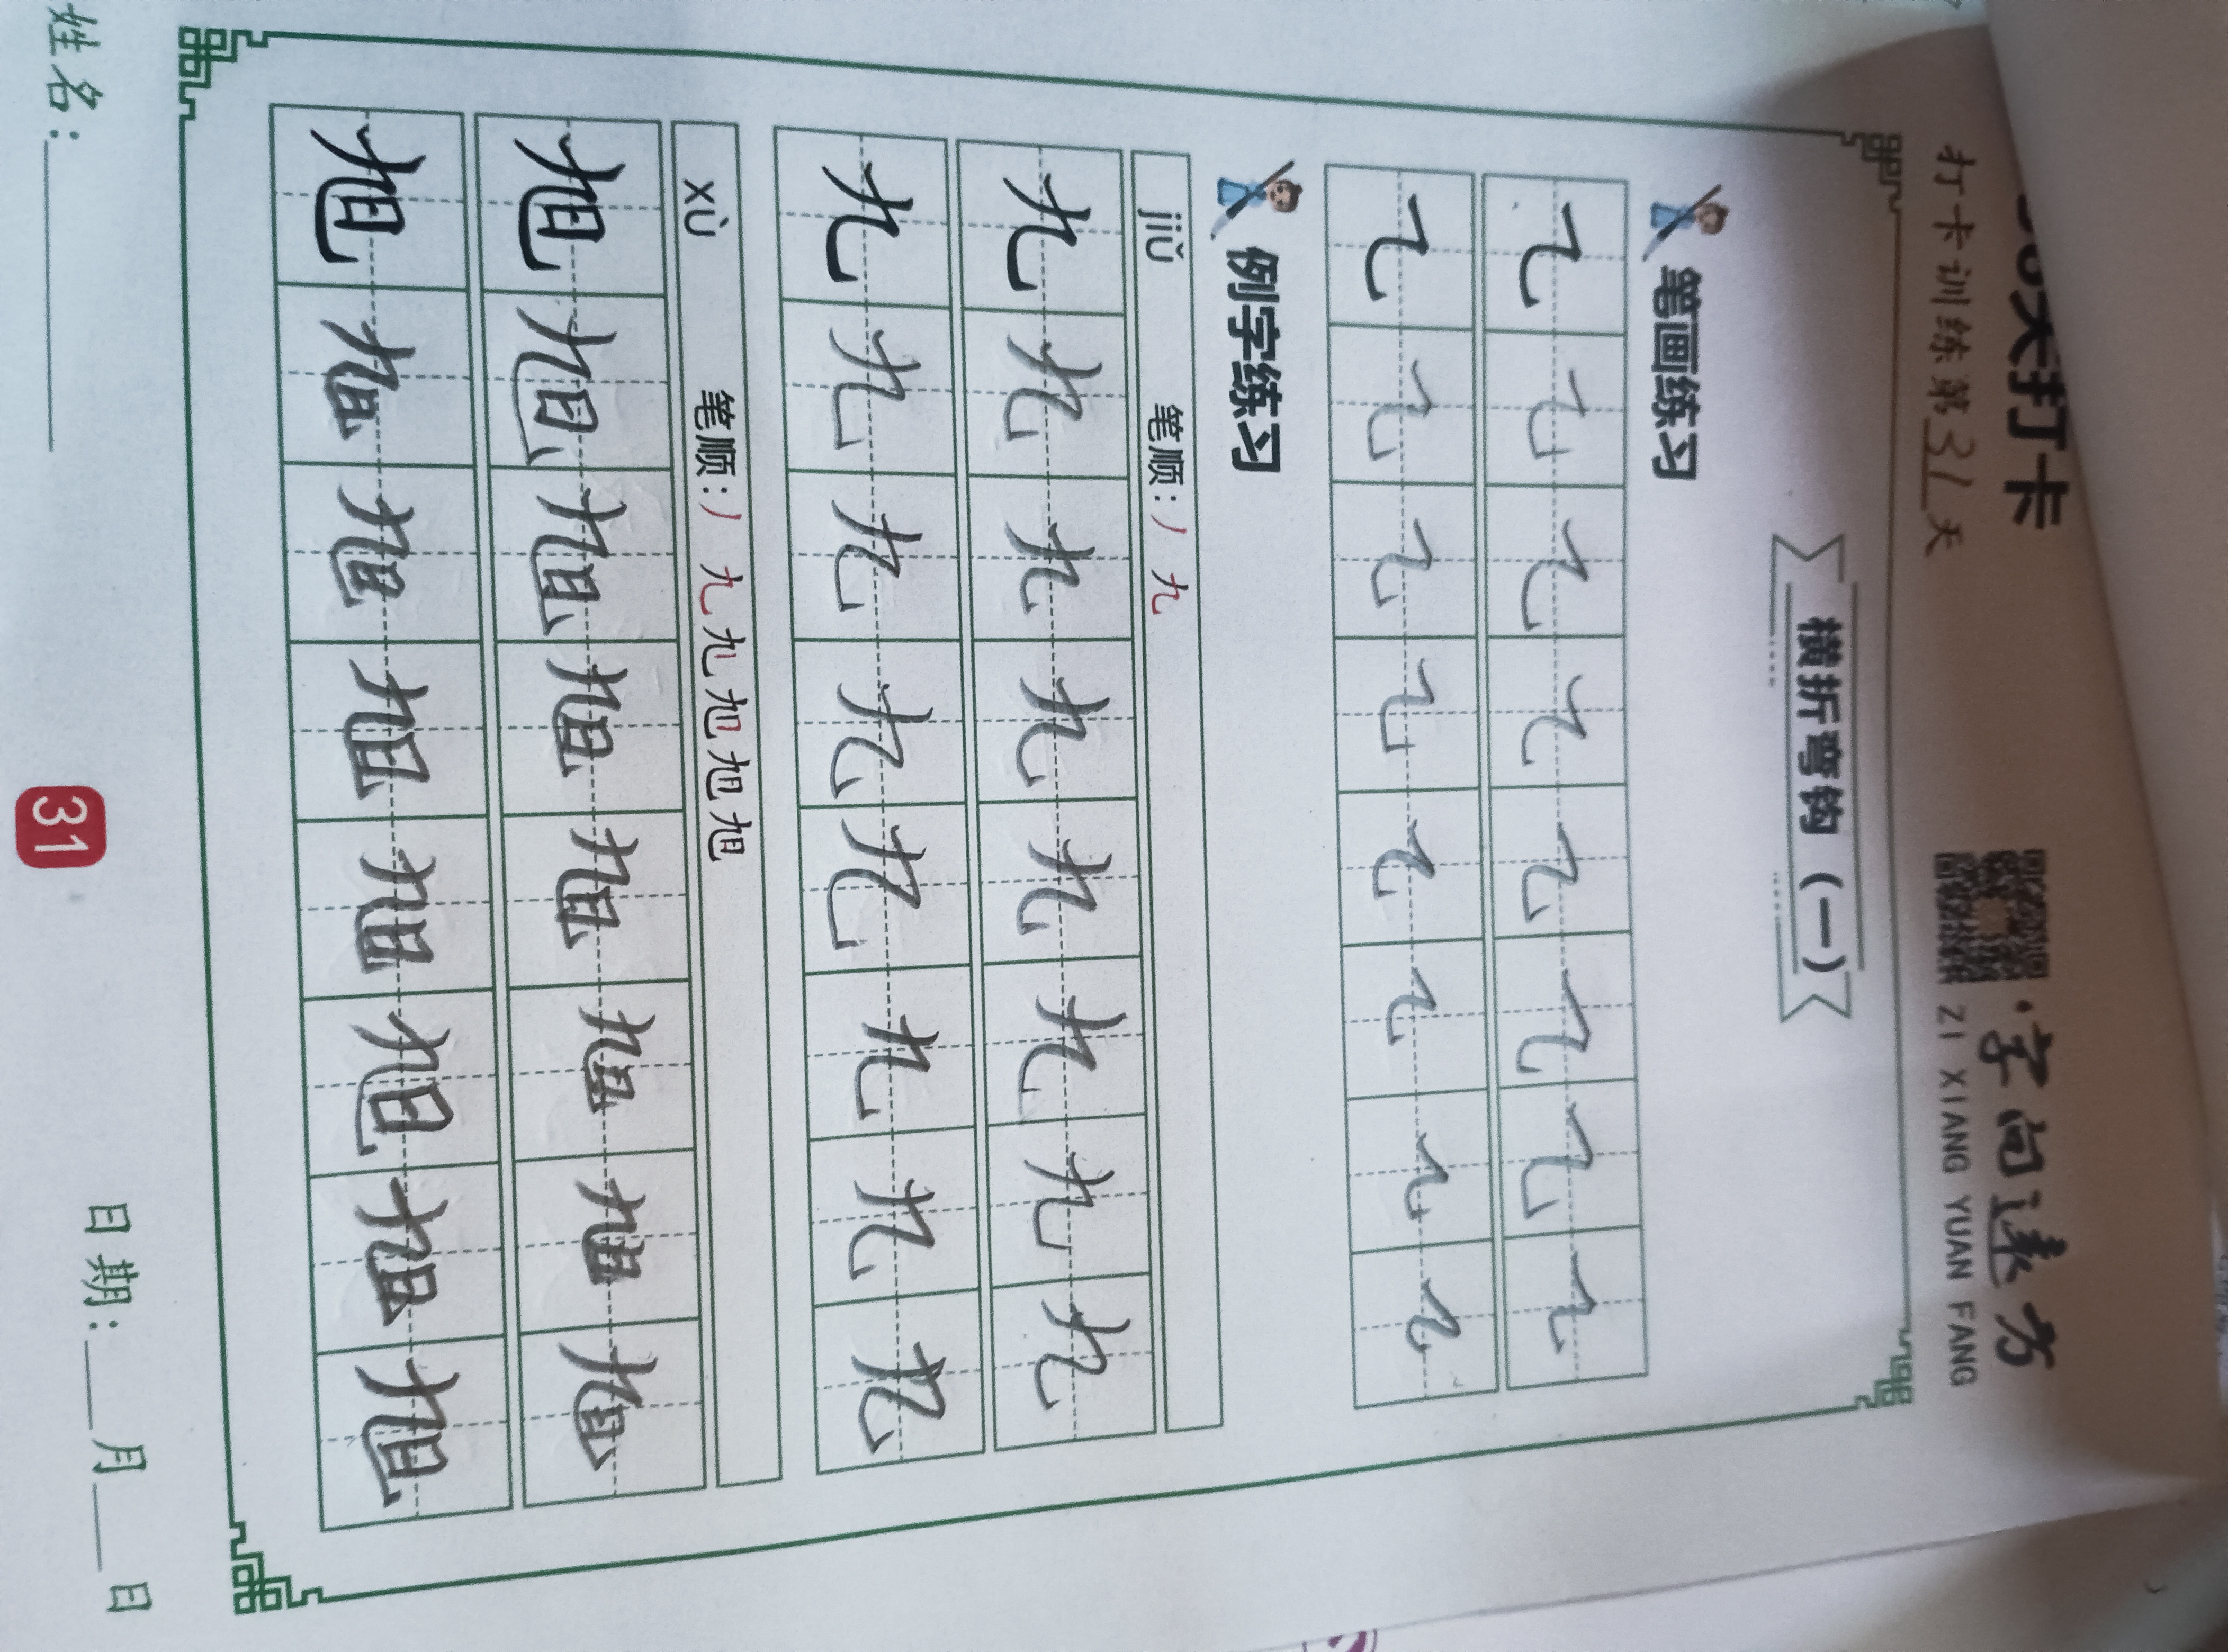 天打卡
字向遠方
打卡训练第31天
ZI XIANG YUAN FANG
横折弯钩（一）
笔画练习
乁 乁 乁 乁 乁 乁 乁 乁
乁 乁 乁 乁 乁 乁 乁 乁
例字练习
jiǔ 笔顺：丿 九
九 九 九 九 九 九 九 九
九 九 九 九 九 九 九 九
xù 笔顺：丿 九 九 旭 旭 旭
旭 旭 旭 旭 旭 旭 旭 旭
旭 旭 旭 旭 旭 旭 旭 旭
姓名：
31
日期：__月__日